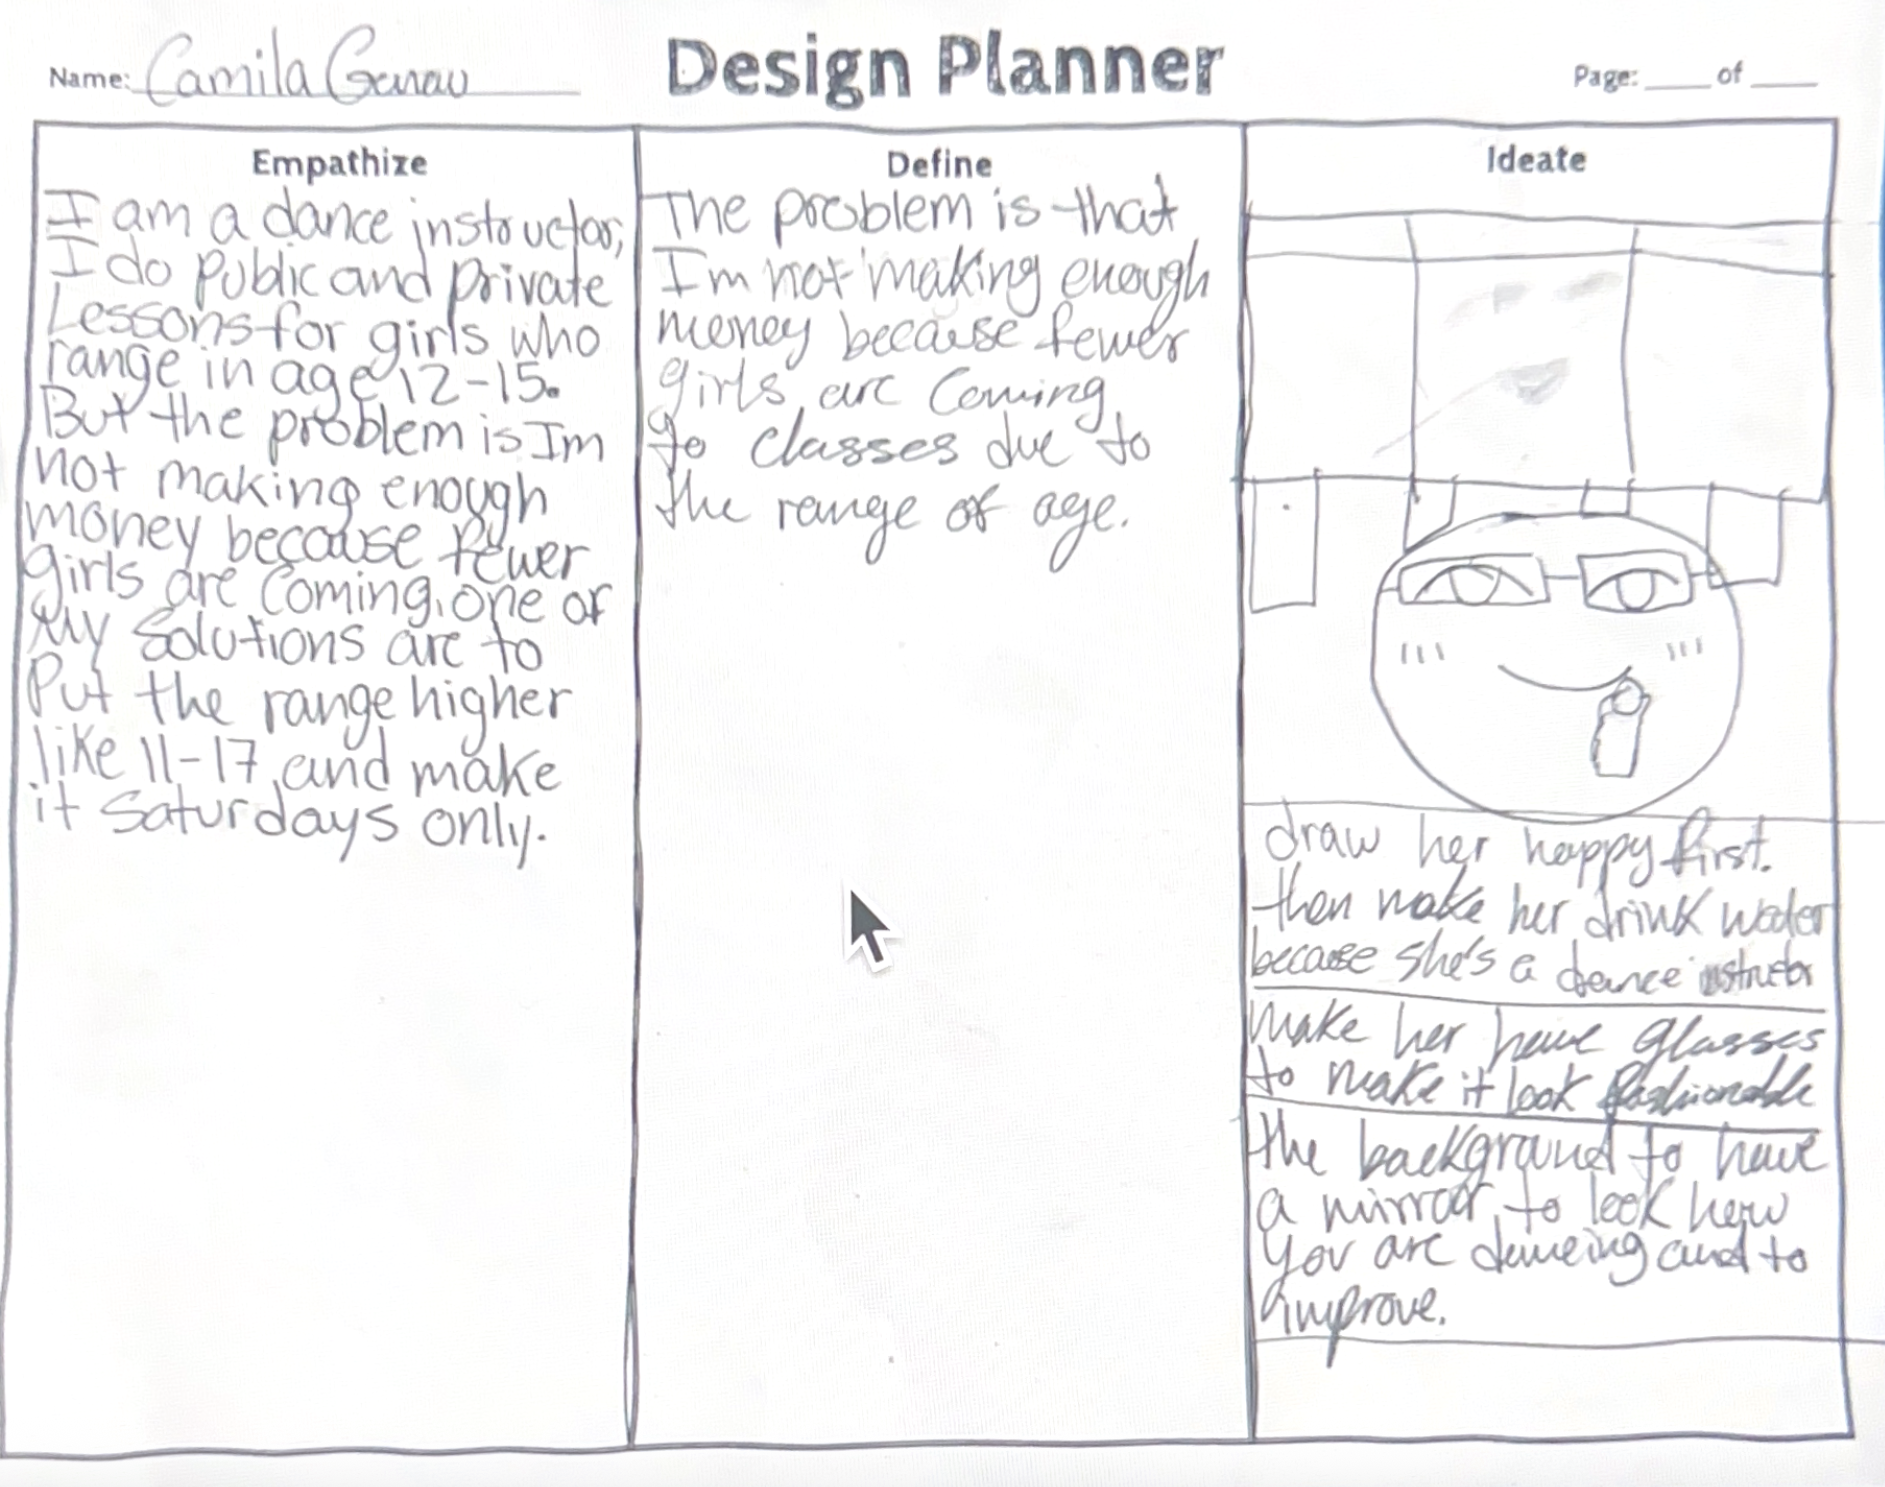 Name: Camila
Design Planner
Page: ____ of ____
Empathize
I am a dance instructor,
I do public and private
Lessons for girls who
range in age 12-15.
But the problem is Im
not making enough
money because fewer
girls are coming, one of
My Solutions are to
Put the range higher
like 11-17 and make
it Saturdays only.
Define
The problem is that
I'm not making enough
money because fewer
girls are coming
to classes due to
the range of age.
Ideate
draw her happy first.
then make her drink water
because she's a dance instructor
make her have glasses
to make it look fashionable
the background to have
a mirror, to look how
you are dancing and to
improve.